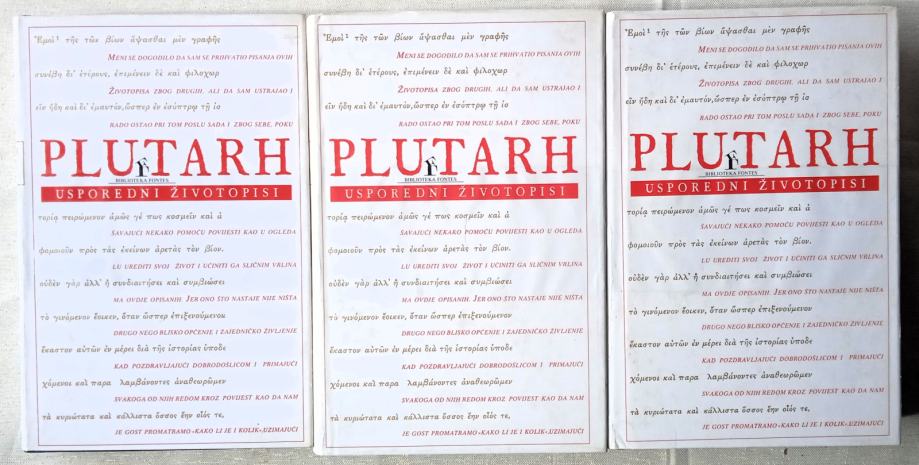 Ἐμοὶ¹ τῆς τῶν βίων ἅψασθαι μὲν γραφῆς
MENI SE DOGODILO DA SAM SE PRIHVATIO PISANJA OVIH
συνέβη δι' ἑτέρους, ἐπιμένειν δὲ καὶ φιλοχωρ
ŽIVOTOPISA ZBOG DRUGIH, ALI DA SAM USTRAJAO I
εῖν ἤδη καὶ δι' ἐμαυτόν,ὥσπερ ἐν ἐσόπτρῳ τῇ ἱσ
RADO OSTAO PRI TOM POSLU SADA I ZBOG SEBE, POKU
PLUTARH
BIBLIOTEKA FONTES
USPOREDNI ŽIVOTOPISI
τορίᾳ πειρώμενον ἁμῶς γέ πως κοσμεῖν καὶ ἀ
ŠAVAJUĆI NEKAKO POMOĆU POVIJESTI KAO U OGLEDA
φομοιοῦν πρὸς τὰς ἐκείνων ἀρετὰς τὸν βίον.
LU UREDITI SVOJ ŽIVOT I UČINITI GA SLIČNIM VRLINA
οὐδὲν γὰρ ἀλλ' ἢ συνδιαιτήσει καὶ συμβιώσει
MA OVDJE OPISANIH. JER ONO ŠTO NASTAJE NIJE NIŠTA
τὸ γινόμενον ἔοικεν, ὅταν ὥσπερ ἐπιξενούμενον
DRUGO NEGO BLISKO OPĆENJE I ZAJEDNIČKO ŽIVLJENJE
ἕκαστον αὐτῶν ἐν μέρει διὰ τῆς ἱστορίας ὑποδε
KAD POZDRAVLJAJUĆI DOBRODOŠLICOM I PRIMAJUĆI
χόμενοι καὶ παρα λαμβάνοντες ἀναθεωρῶμεν
SVAKOGA OD NJIH REDOM KROZ POVIJEST KAO DA NAM
τὰ κυριώτατα καὶ κάλλιστα ὅσσος ἔην οἷός τε,
JE GOST PROMATRAMO »KAKO LI JE I KOLIK«,UZIMAJUĆI
Ἐμοὶ¹ τῆς τῶν βίων ἅψασθαι μὲν γραφῆς
MENI SE DOGODILO DA SAM SE PRIHVATIO PISANJA OVIH
συνέβη δι' ἑτέρους, ἐπιμένειν δὲ καὶ φιλοχωρ
ŽIVOTOPISA ZBOG DRUGIH, ALI DA SAM USTRAJAO I
εῖν ἤδη καὶ δι' ἐμαυτόν,ὥσπερ ἐν ἐσόπτρῳ τῇ ἱσ
RADO OSTAO PRI TOM POSLU SADA I ZBOG SEBE, POKU
PLUTARH
BIBLIOTEKA FONTES
USPOREDNI ŽIVOTOPISI
τορίᾳ πειρώμενον ἁμῶς γέ πως κοσμεῖν καὶ ἀ
ŠAVAJUĆI NEKAKO POMOĆU POVIJESTI KAO U OGLEDA
φομοιοῦν πρὸς τὰς ἐκείνων ἀρετὰς τὸν βίον.
LU UREDITI SVOJ ŽIVOT I UČINITI GA SLIČNIM VRLINA
οὐδὲν γὰρ ἀλλ' ἢ συνδιαιτήσει καὶ συμβιώσει
MA OVDJE OPISANIH. JER ONO ŠTO NASTAJE NIJE NIŠTA
τὸ γινόμενον ἔοικεν, ὅταν ὥσπερ ἐπιξενούμενον
DRUGO NEGO BLISKO OPĆENJE I ZAJEDNIČKO ŽIVLJENJE
ἕκαστον αὐτῶν ἐν μέρει διὰ τῆς ἱστορίας ὑποδε
KAD POZDRAVLJAJUĆI DOBRODOŠLICOM I PRIMAJUĆI
χόμενοι καὶ παρα λαμβάνοντες ἀναθεωρῶμεν
SVAKOGA OD NJIH REDOM KROZ POVIJEST KAO DA NAM
τὰ κυριώτατα καὶ κάλλιστα ὅσσος ἔην οἷός τε,
JE GOST PROMATRAMO »KAKO LI JE I KOLIK«,UZIMAJUĆI
Ἐμοὶ¹ τῆς τῶν βίων ἅψασθαι μὲν γραφῆς
MENI SE DOGODILO DA SAM SE PRIHVATIO PISANJA OVIH
συνέβη δι' ἑτέρους, ἐπιμένειν δὲ καὶ φιλοχωρ
ŽIVOTOPISA ZBOG DRUGIH, ALI DA SAM USTRAJAO I
εῖν ἤδη καὶ δι' ἐμαυτόν,ὥσπερ ἐν ἐσόπτρῳ τῇ ἱσ
RADO OSTAO PRI TOM POSLU SADA I ZBOG SEBE, POKU
PLUTARH
BIBLIOTEKA FONTES
USPOREDNI ŽIVOTOPISI
τορίᾳ πειρώμενον ἁμῶς γέ πως κοσμεῖν καὶ ἀ
ŠAVAJUĆI NEKAKO POMOĆU POVIJESTI KAO U OGLEDA
φομοιοῦν πρὸς τὰς ἐκείνων ἀρετὰς τὸν βίον.
LU UREDITI SVOJ ŽIVOT I UČINITI GA SLIČNIM VRLINA
οὐδὲν γὰρ ἀλλ' ἢ συνδιαιτήσει καὶ συμβιώσει
MA OVDJE OPISANIH. JER ONO ŠTO NASTAJE NIJE NIŠTA
τὸ γινόμενον ἔοικεν, ὅταν ὥσπερ ἐπιξενούμενον
DRUGO NEGO BLISKO OPĆENJE I ZAJEDNIČKO ŽIVLJENJE
ἕκαστον αὐτῶν ἐν μέρει διὰ τῆς ἱστορίας ὑποδε
KAD POZDRAVLJAJUĆI DOBRODOŠLICOM I PRIMAJUĆI
χόμενοι καὶ παρα λαμβάνοντες ἀναθεωρῶμεν
SVAKOGA OD NJIH REDOM KROZ POVIJEST KAO DA NAM
τὰ κυριώτατα καὶ κάλλιστα ὅσσος ἔην οἷός τε,
JE GOST PROMATRAMO »KAKO LI JE I KOLIK«,UZIMAJUĆI